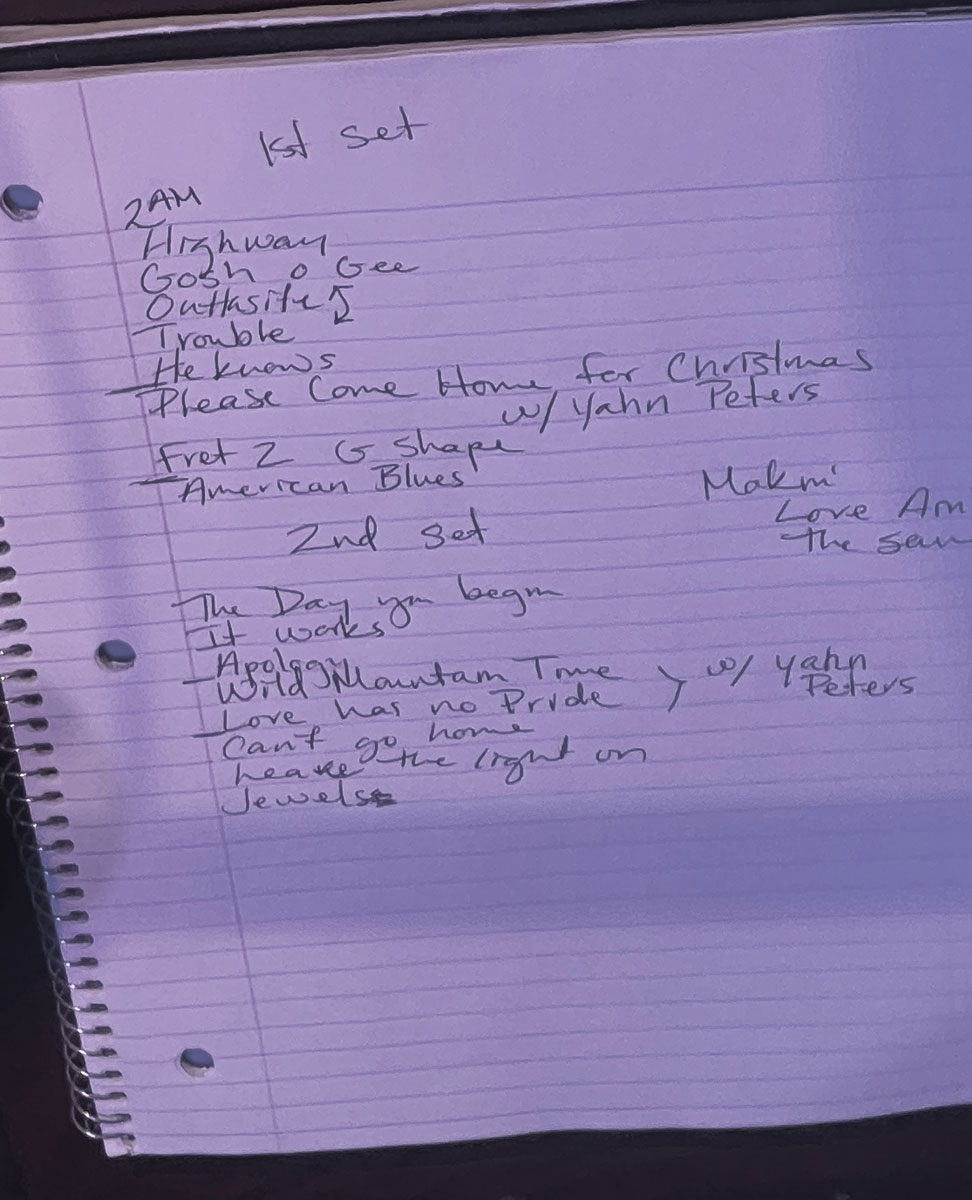 1st set
2AM
Highway
Gosh o Gee
Outtasite
Trouble
He knows
Please Come Home for Christmas
w/ Yahn Peters
Fret 2 G Shape
American Blues
Makin'
Love Am
the sam
2nd set
The Day you begin
It works
Apology
Wild Mountain Time
Love has no Pride
w/ Yahn
Peters
Can't go home
Leave the light on
Jewels